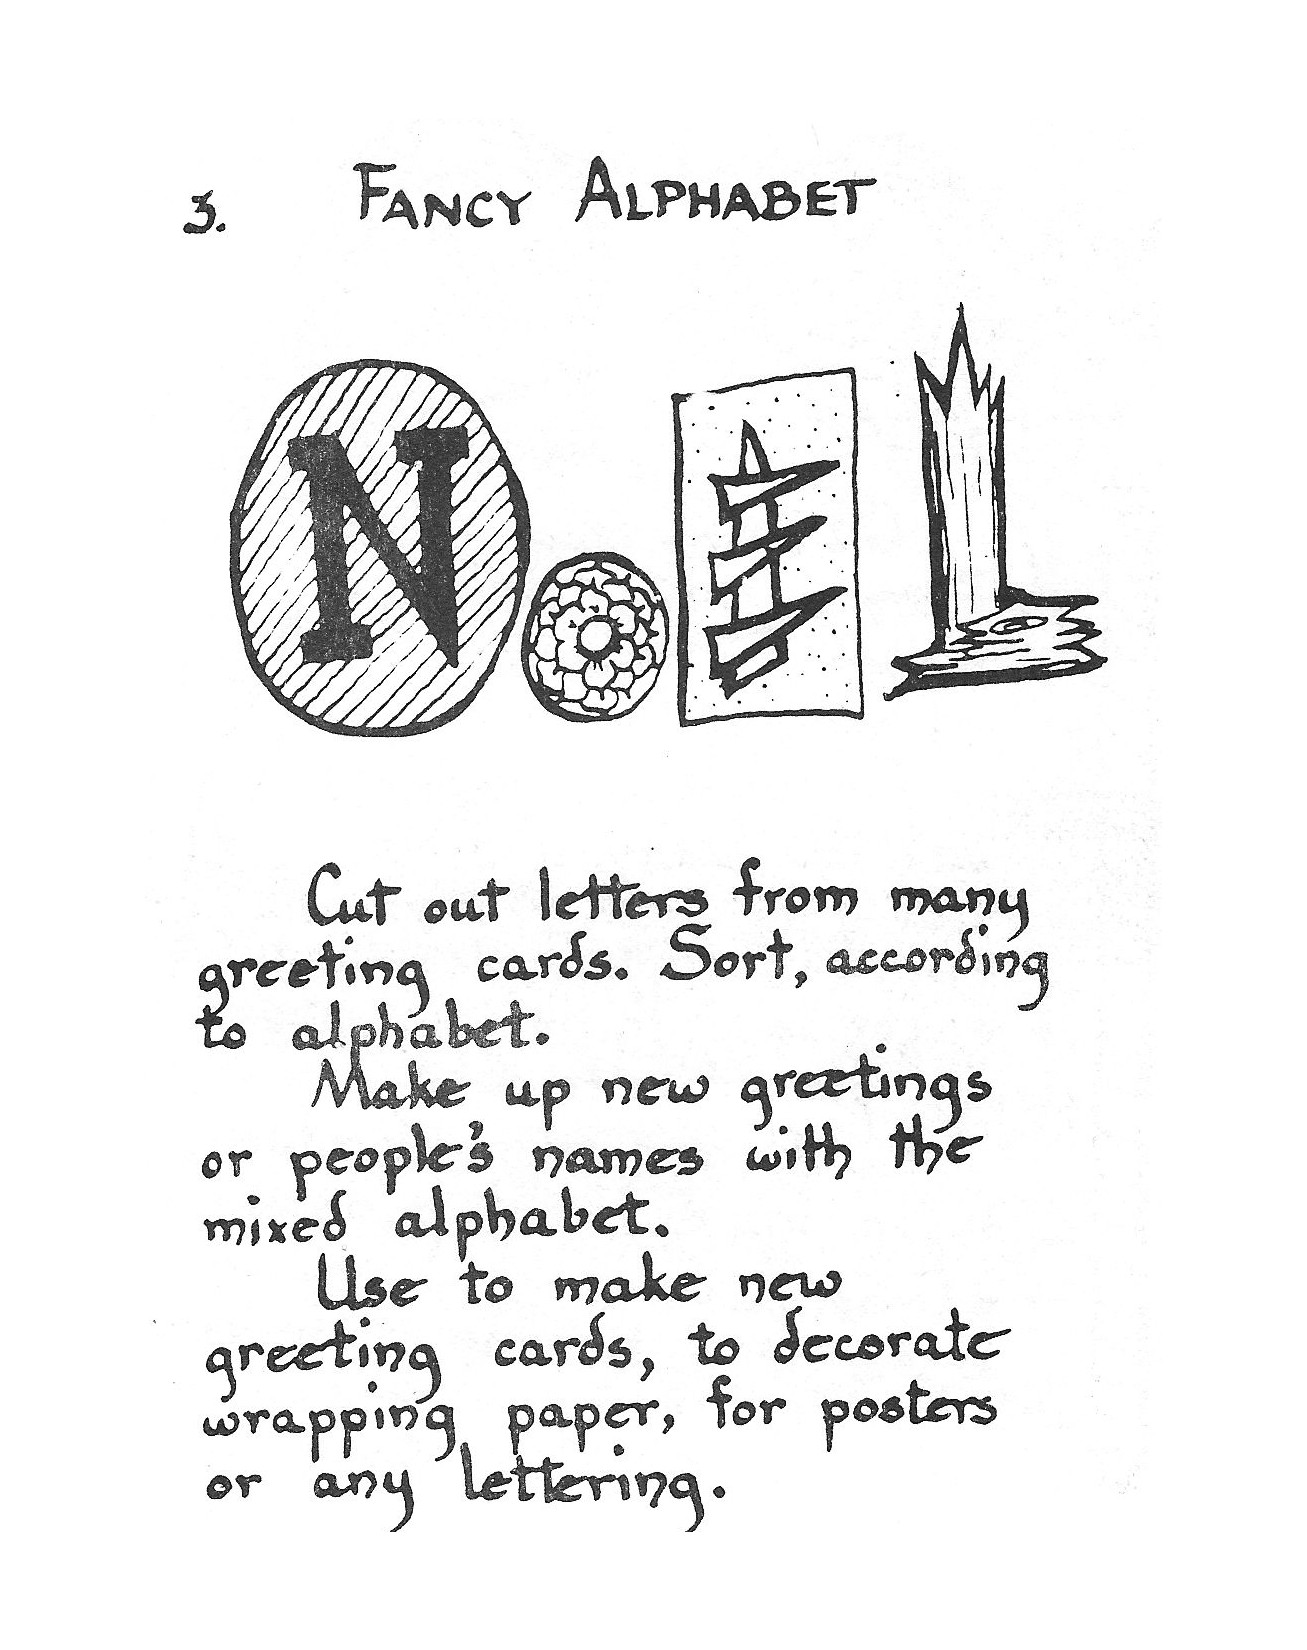 3. FANCY ALPHABET
NOEL
Cut out letters from many
greeting cards. Sort, according
to alphabet.
Make up new greetings
or people's names with the
mixed alphabet.
Use to make new
greeting cards, to decorate
wrapping paper, for posters
or any lettering.